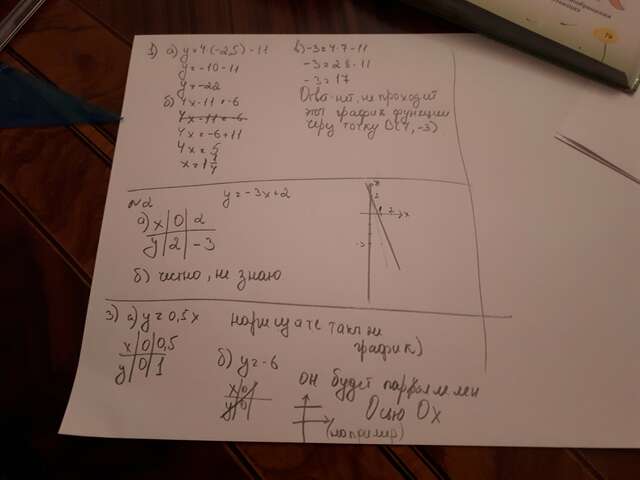 1) а) y=4·(-2,5)-11
y=-10-11
y=-22
б) 4x-11=-6
4x-11=-6
4x=-6+11
4x=5
x=1 1/4
в) -3=4·7-11
-3=28-11
-3=17
Ответ: нет, не проходит
этот график функции
через точку B(7,-3)
№2 y=-3x+2
а) x 0 2
y 2 -3
б) честно, не знаю
3) а) y=0,5x
x 0 0,5
y 0 1
нарисуйте такой же
график)
б) y=-6
x 0
y 0
он будет параллелен
Осью Ox
(например)